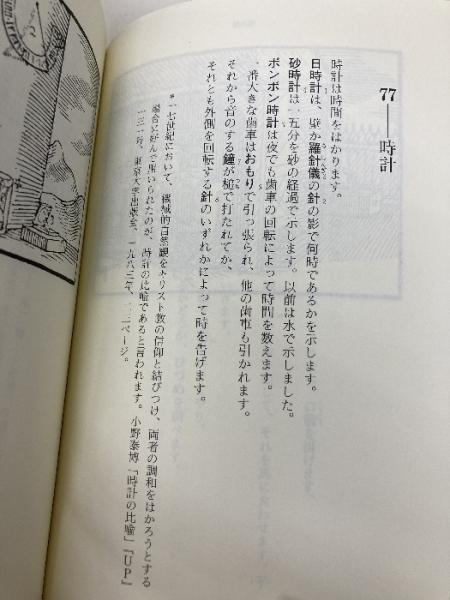 77――時計
時計は時間をはかります。
日時計は、壁か羅針儀の針の影で何時であるかを示します。
砂時計は一五分を砂の経過で示します。以前は水で示しました。
ボンボン時計は夜でも歯車の回転によって時間を数えます。
一番大きな歯車はおもりで引っ張られ、他の歯車も引かれます。
それから音のする鐘が槌で打たれてか、
それとも外側を回転する針のいずれかによって時を告げます。
*一七世紀において、機械的自然観をキリスト教の信仰と結びつけ、両者の調和をはかろうとする
場合に好んで用いられたのが、時計の比喩であると言われます。小野泰博「時計の比喩」『UP』
一三一号、東京大学出版会、一九八三年、一二ページ。